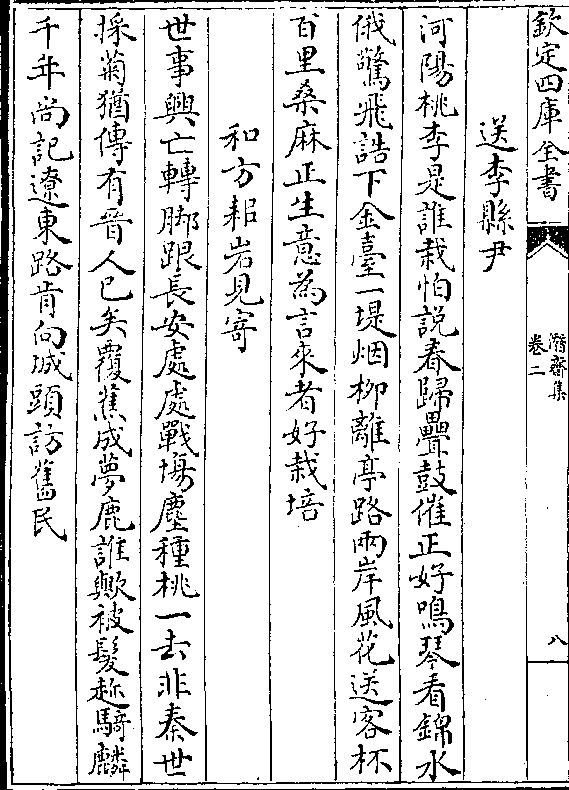 欽定四庫全書
潛齋集
卷二
八
送李縣尹
河陽桃李是誰栽怕説春歸疊鼓催正好鳴琴看錦水
俄驚飛誥下金臺一堤烟柳離亭路兩岸風花送客杯
百里桑麻正生意為言來者好栽培
和方耜岩見寄
世事興亡轉脚跟長安處處戰塲塵種桃一去非秦世
採菊猶傳有晉人已矣覆蕉成夢鹿誰歟被髮趂騎麟
千年尚記遼東路肯向城頭訪舊民